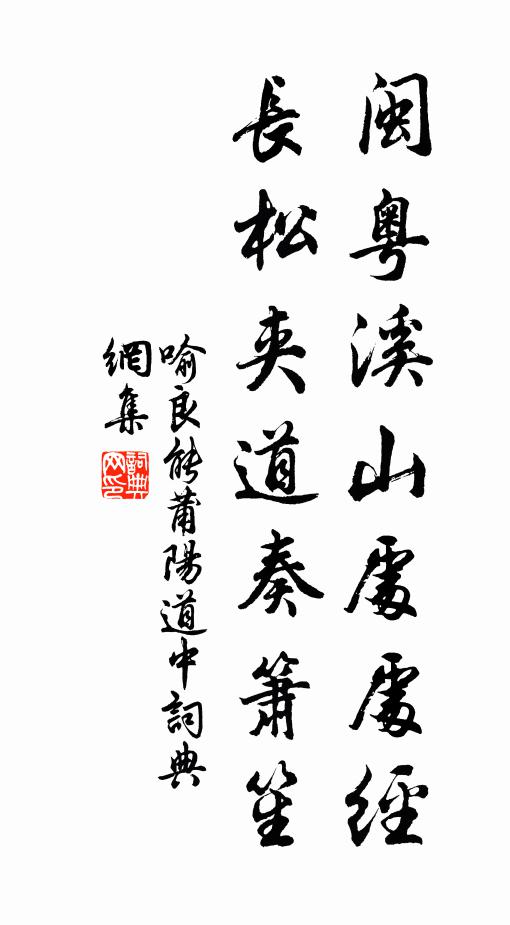 閩粵溪山處處經
長松夾道奏簫笙
喻良能莆陽道中詞典
網集
詞典網印